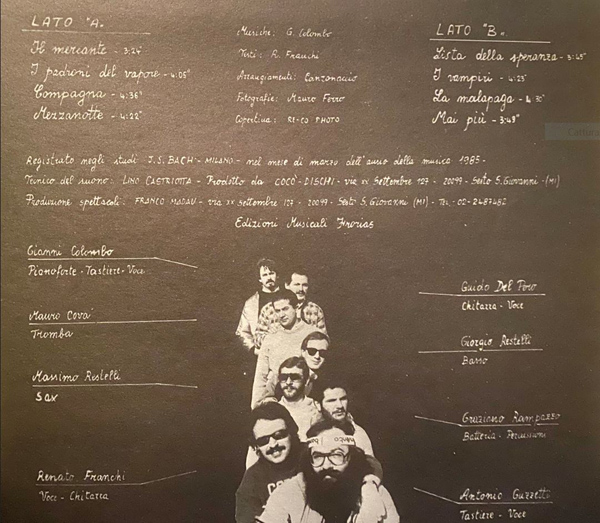 LATO "A"
Il mercante - 3:24"
I padroni del vapore - 4:05"
Compagna - 4:36"
Mezzanotte - 4:22"
Musiche: G. Colombo
Testi: R. Franchi
Arrangiamenti: Canzonaccio
Fotografie: Mauro Ferro
Copertina: RE-CO PHOTO
LATO "B"
Lista della speranza - 3:45"
I vampiri - 4:25"
La malapaga - 4:30"
Mai più - 3:49"
Registrato negli studi J.S. BACH - MILANO - nel mese di marzo dell'anno della musica 1985 -
Tecnico del suono: LINO CASTRIOTTA - Prodotto da COCO' - DISCHI - via XX Settembre 127 - 20099 - Sesto S. Giovanni - (MI)
Produzione spettacoli: FRANCO MADAU - via XX settembre 127 - 20099 - Sesto S. Giovanni (MI) - Tel. 02-2487482
Edizioni Musicali
Gianni Colombo
Pianoforte - Tastiere - Voce
Mauro Covà
Tromba
Massimo Restelli
Sax
Renato Franchi
Voce - Chitarra
Guido Del Foro
Chitarra - Voce
Giorgio Restelli
Basso
Graziano Rampazzo
Batteria - Percussioni
Antonio Guzzetti
Tastiere - Voce